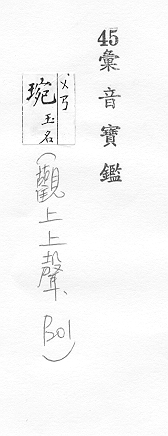 45彙音寶鑑
ㄨㄢ
琬玉名
(觀上上聲、BOI)